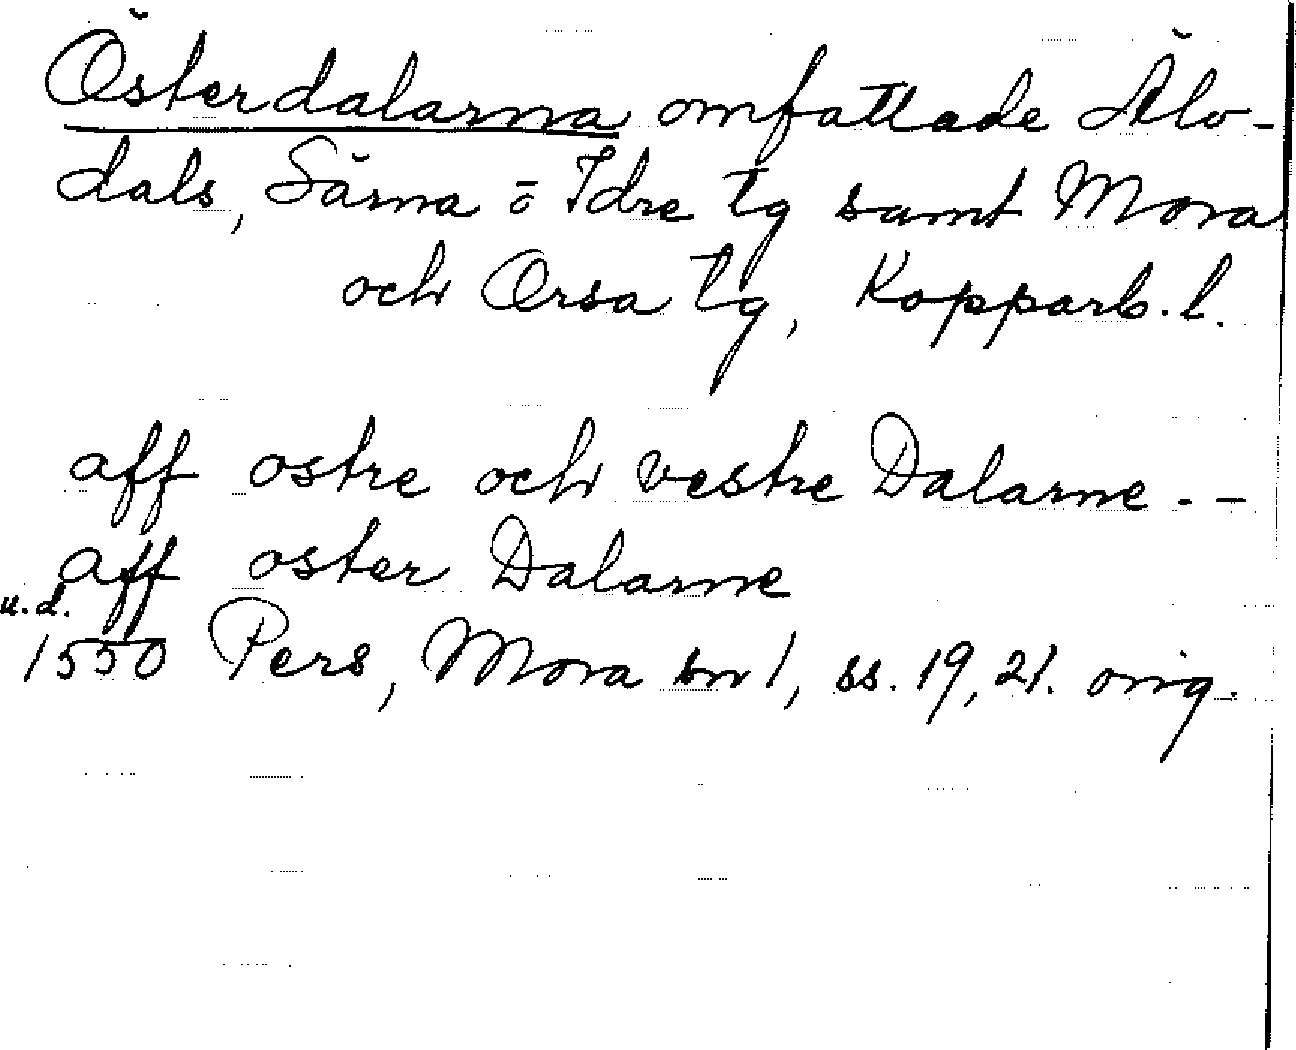 Österdalarna omfattade Älv-
dals, Särna o Idre tg samt Mora
och Orsa tg, Kopparb. l.
aff ostre och vestre Dalarne - -
aff oster Dalarne
u.d.
1550 Pers, Mora sn 1, ss. 19, 21. orig.